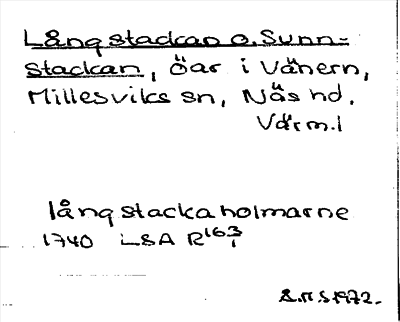 Långstackan o. Sunn-
stackan, öar i Vänern,
Millesviks sn, Näs hd.
Värml
långstackaholmarne
1740 LSA R163/1
1972.